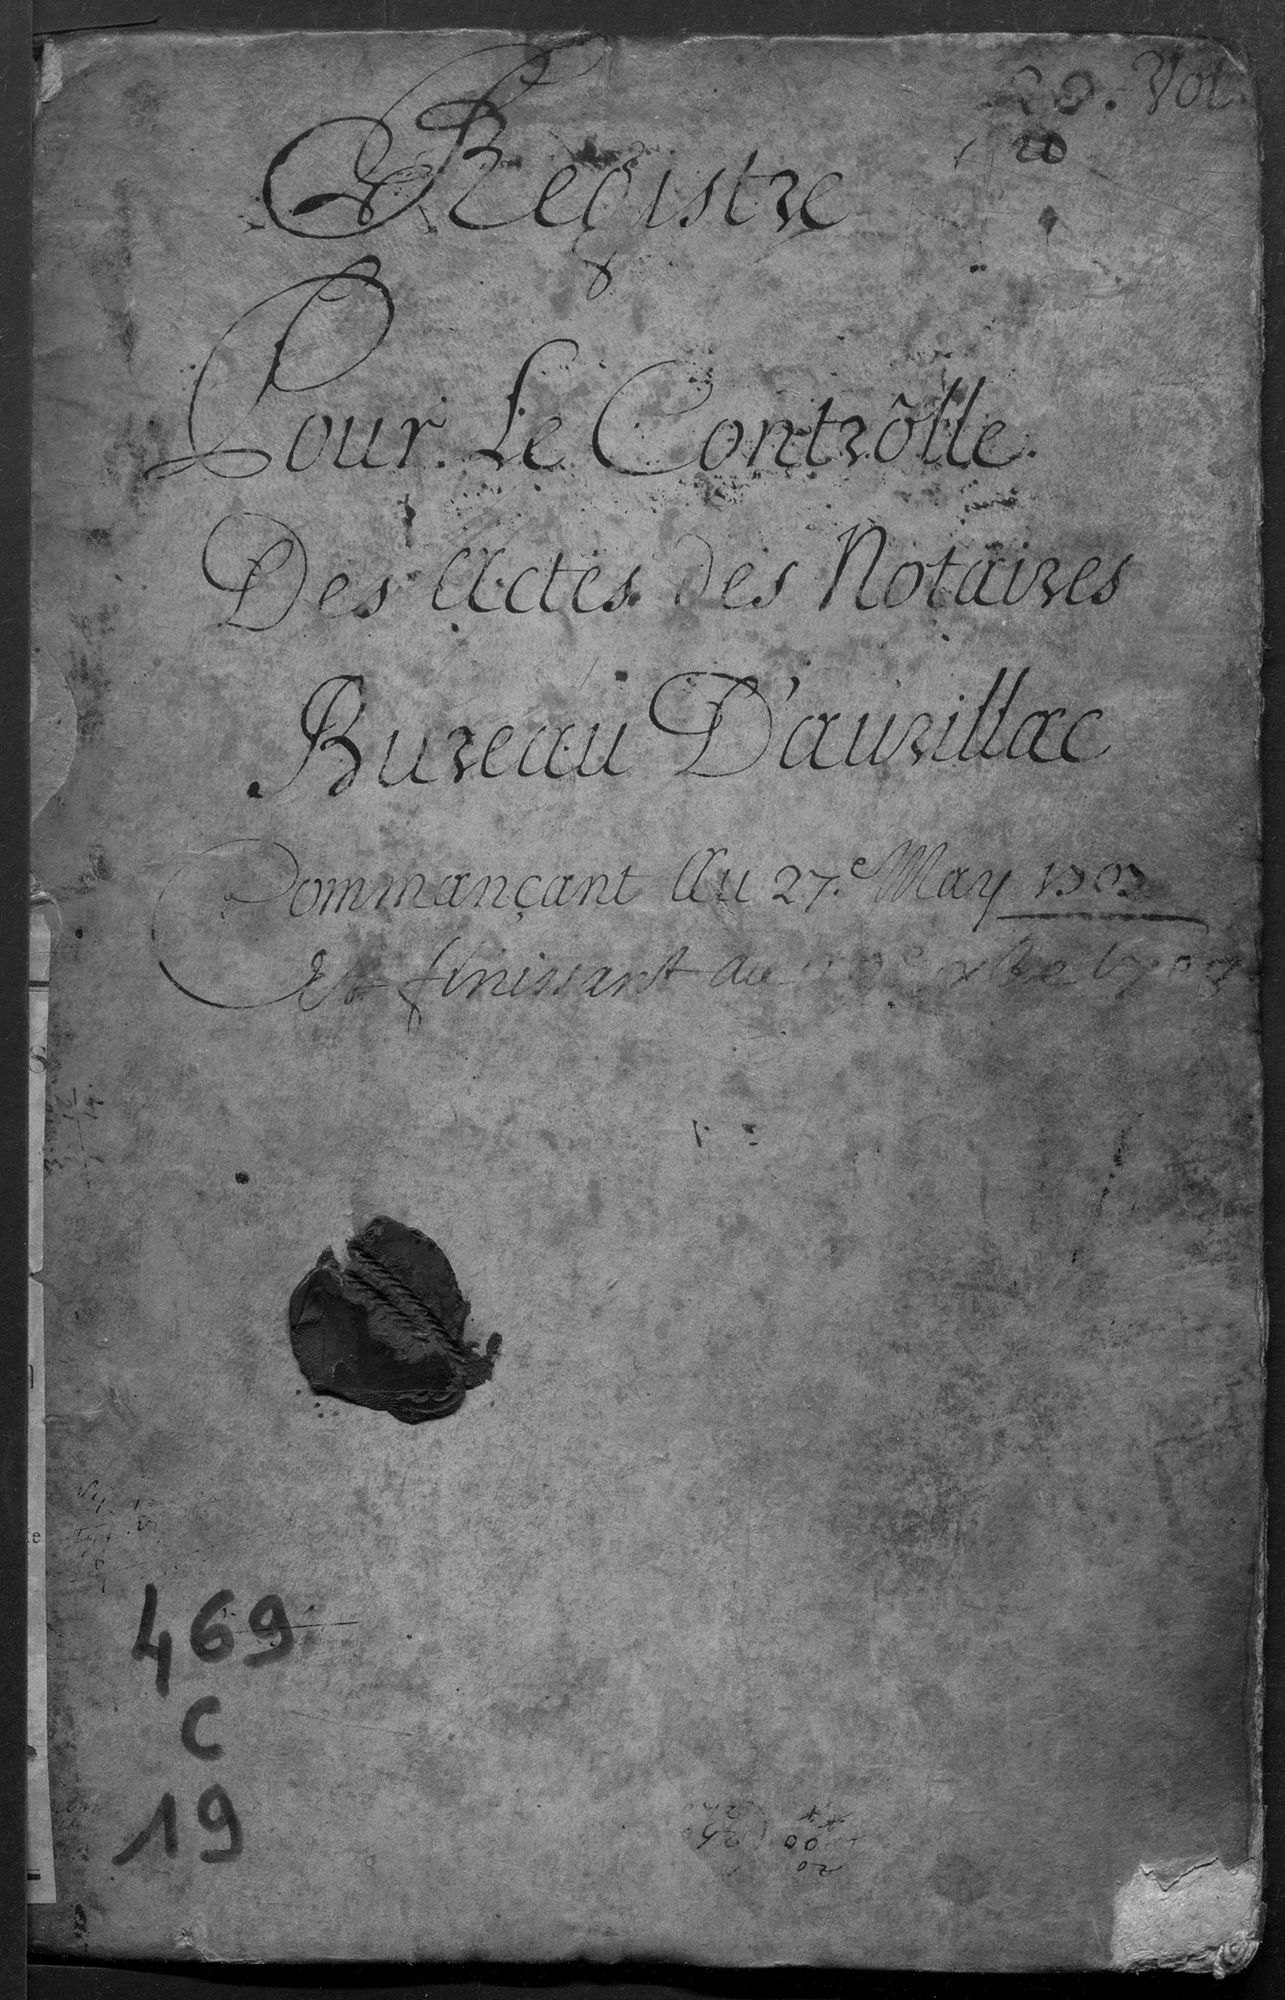 20. Vol.
20
Registre
Pour Le Contrôlle.
Des Actes des Notaires
Bureau D'aurillac
Commançant Au 27.e May 1703
Et finissant au
469
C
19